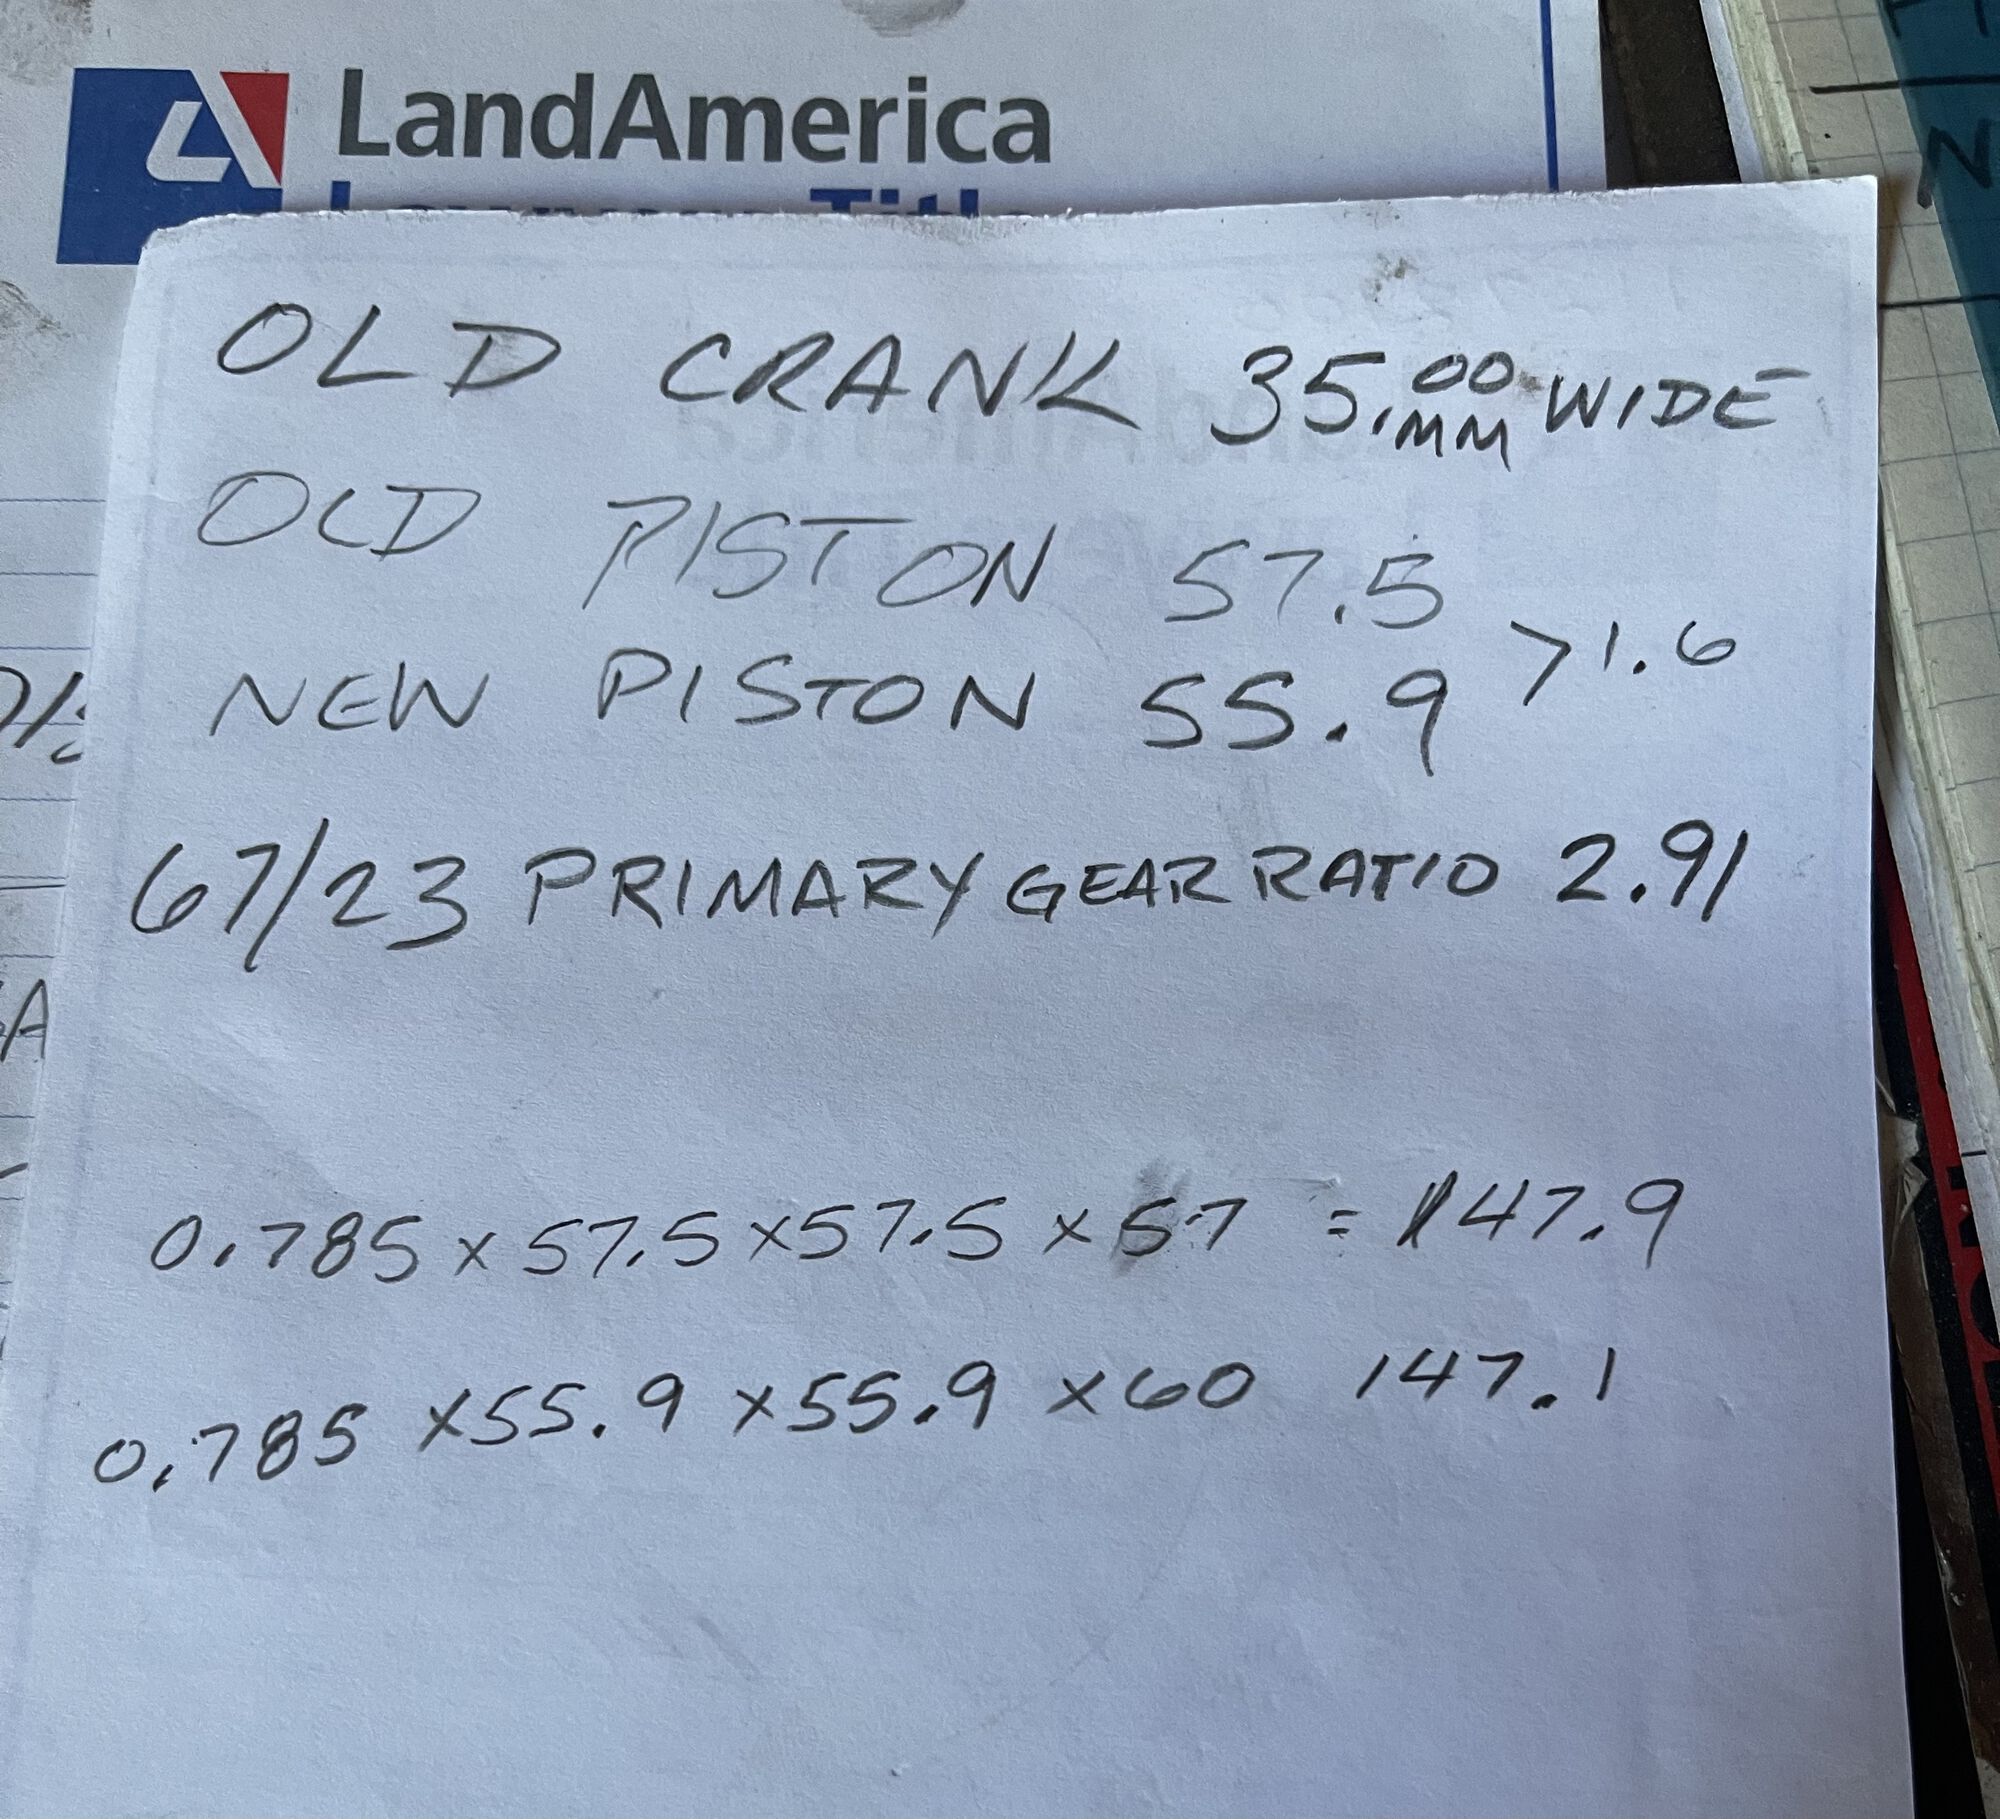 LandAmerica
OLD CRANK 35.00 MM WIDE
OLD PISTON 57.5
NEW PISTON 55.9 > 1.6
67/23 PRIMARY GEAR RATIO 2.91
0.785 x 57.5 x 57.5 x 57 = 147.9
0.785 x 55.9 x 55.9 x 60 147.1